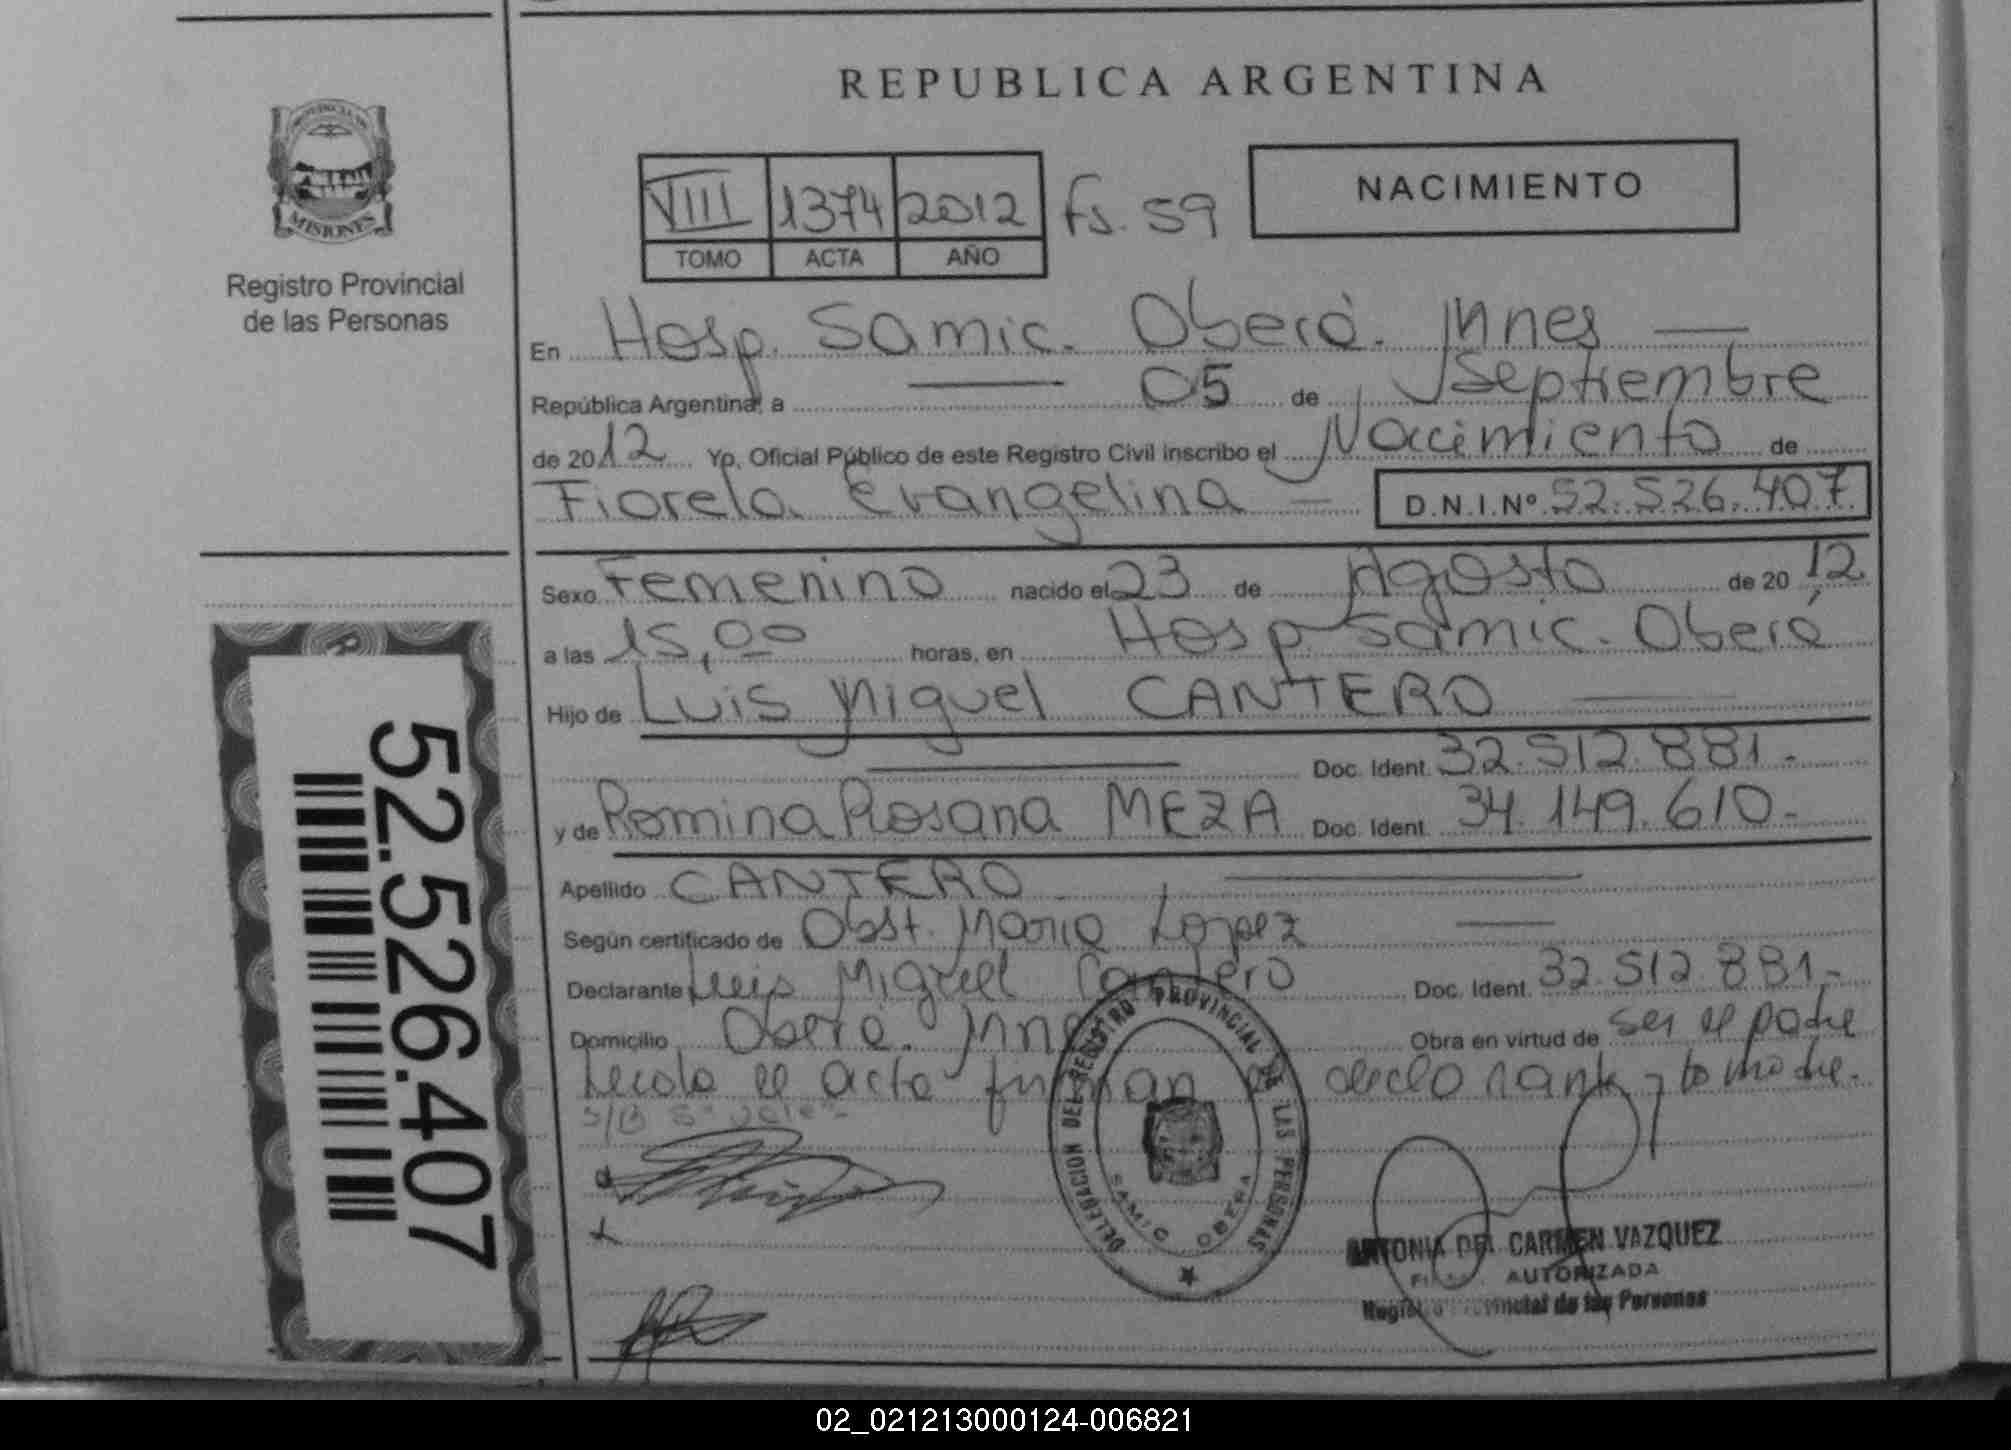 REPUBLICA ARGENTINA
PROVINCIA DE
MISIONES
Registro Provincial
de las Personas
VIII 1374 2012 Fs. 59
TOMO ACTA AÑO
NACIMIENTO
En Hosp. Samic. Oberá. Mnes
República Argentina, a 05 de Septiembre
de 2012 Yo, Oficial Público de este Registro Civil inscribo el Nacimiento de
Fiorela Evangelina D.N.I.Nº 52.526.407
Sexo Femenino nacido el 23 de Agosto de 2012
a las 15,00 horas, en Hosp. Samic. Oberá
Hijo de Luis Miguel CANTERO
Doc. Ident. 32.512.881.-
y de Romina Rosana MEZA Doc. Ident. 34.149.610.-
Apellido CANTERO
Según certificado de Obst. Maria Lopez
Declarante Luis Miguel Cantero Doc. Ident. 32.512.881.-
Domicilio Oberá. Mnes Obra en virtud de ser el padre
Leida el acta firman el declarante y la madre.-
52.526.407
DELEGACION DEL REGISTRO PROVINCIAL DE LAS PERSONAS
SAMIC OBERA
ANTONIA DEL CARMEN VAZQUEZ
AUTORIZADA
Registro Provincial de las Personas
02_021213000124-006821